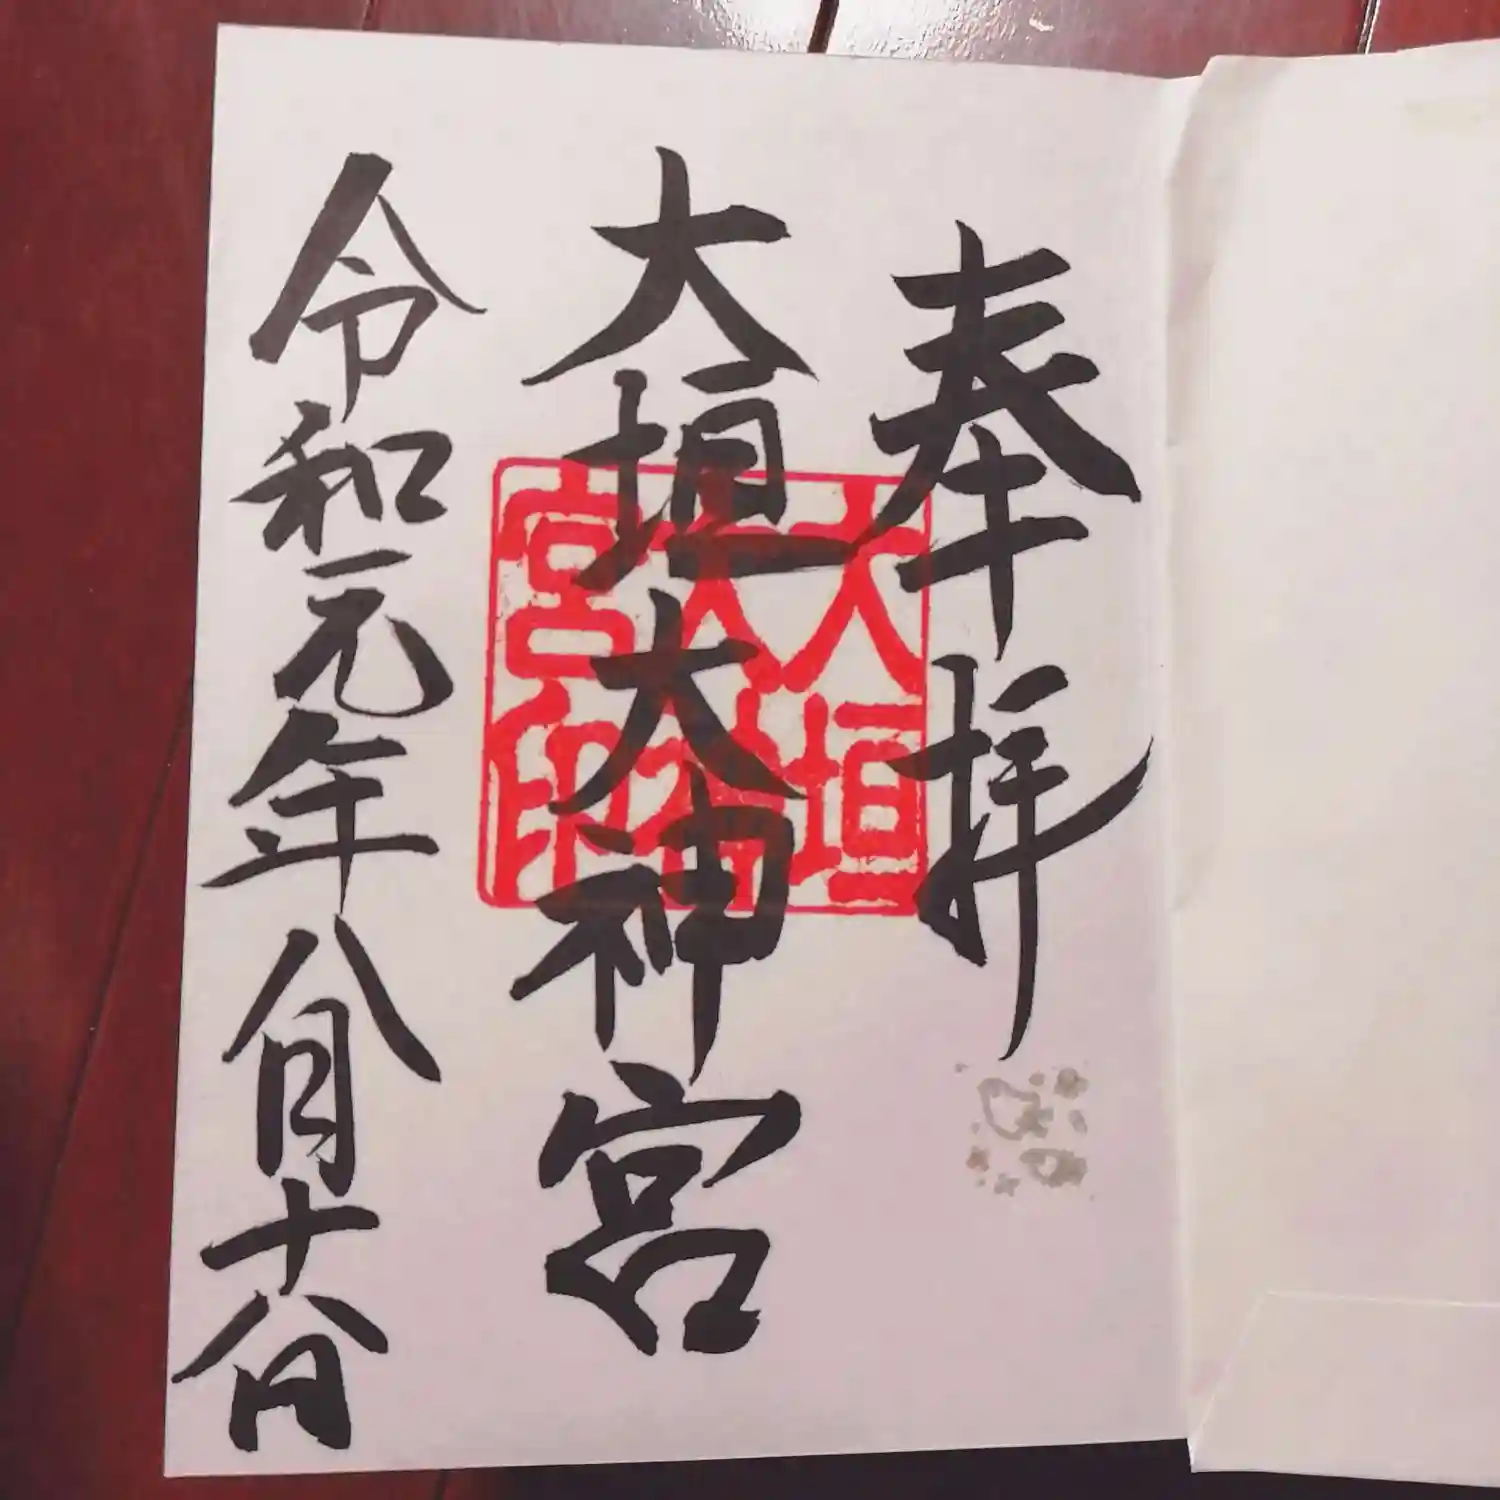 奉拝
大垣大神宮
大垣大神宮印
令和元年八月十八日